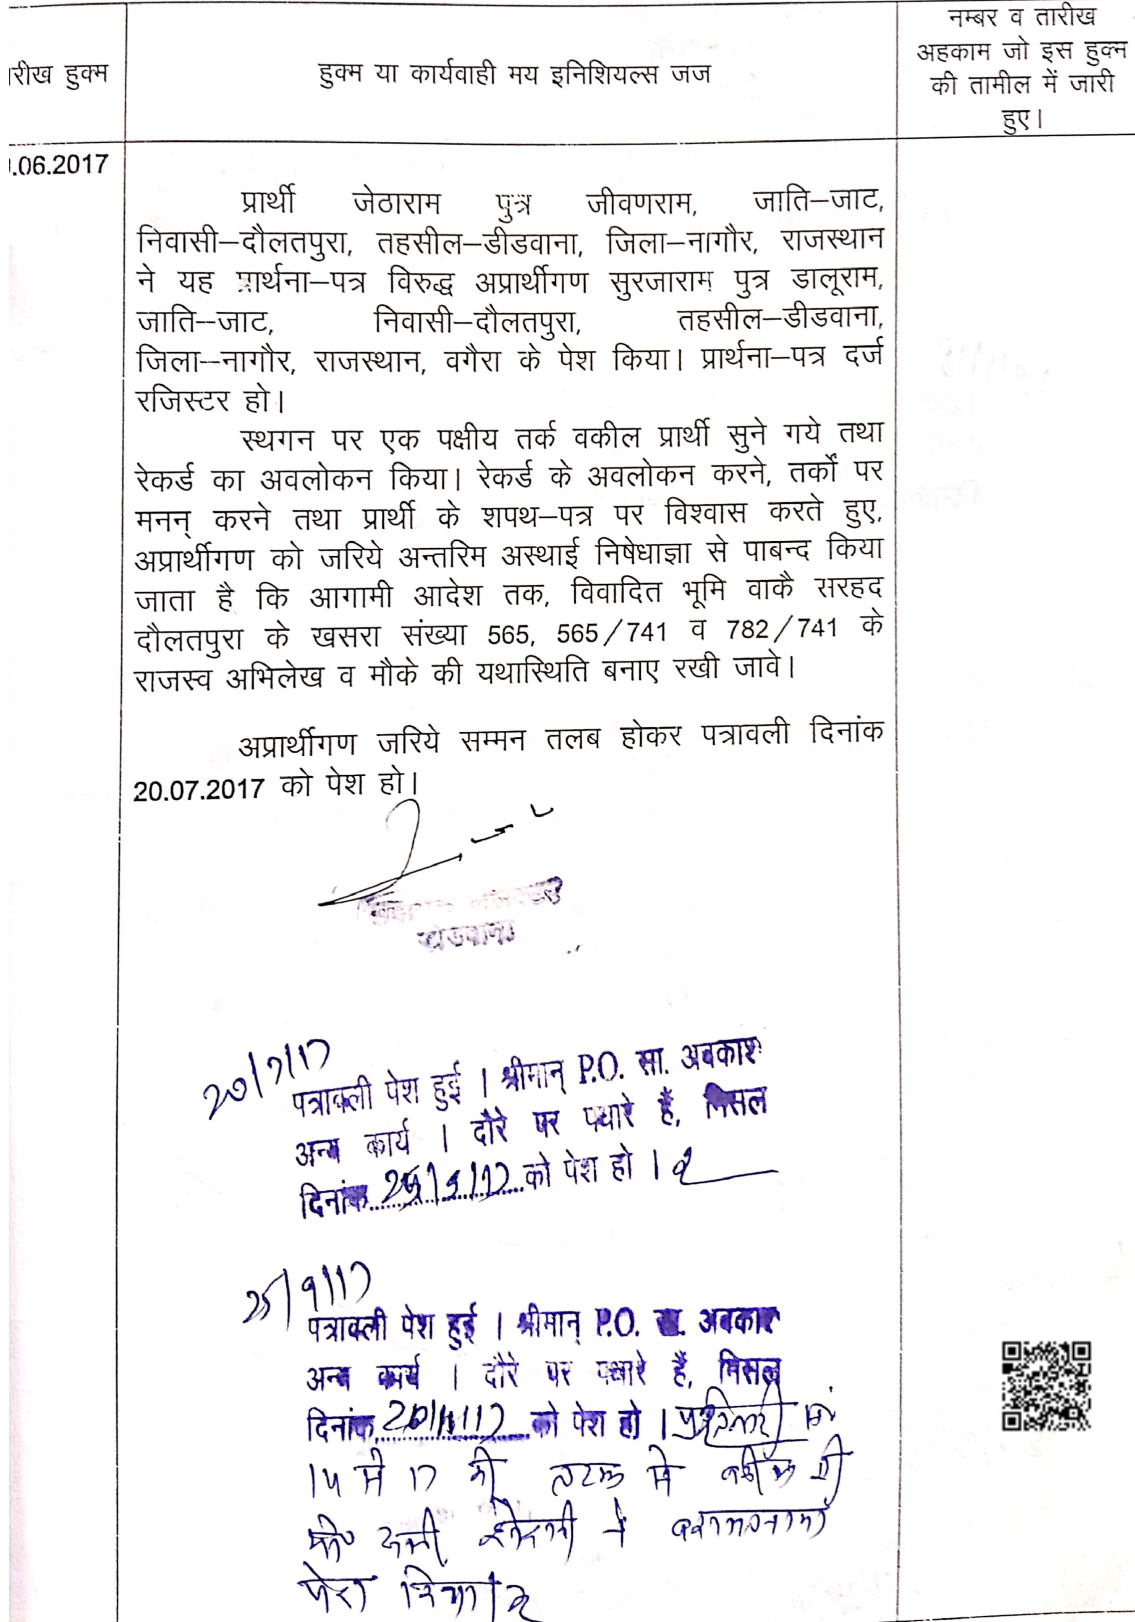 नम्बर व तारीख
अहकाम जो इस हुक्म
की तामील में जारी
हुए।
रीख हुक्म
हुक्म या कार्यवाही मय इनिशियल्स जज
.06.2017
प्रार्थी जेठाराम पुत्र जीवणराम, जाति–जाट,
निवासी–दौलतपुरा, तहसील–डीडवाना, जिला–नागौर, राजस्थान
ने यह प्रार्थना–पत्र विरुद्ध अप्रार्थीगण सुरजाराम पुत्र डालूराम,
जाति–जाट, निवासी–दौलतपुरा, तहसील–डीडवाना,
जिला–नागौर, राजस्थान, वगैरा के पेश किया। प्रार्थना–पत्र दर्ज
रजिस्टर हो।
स्थगन पर एक पक्षीय तर्क वकील प्रार्थी सुने गये तथा
रेकर्ड का अवलोकन किया। रेकर्ड के अवलोकन करने, तर्कों पर
मनन् करने तथा प्रार्थी के शपथ–पत्र पर विश्वास करते हुए,
अप्रार्थीगण को जरिये अन्तरिम अस्थाई निषेधाज्ञा से पाबन्द किया
जाता है कि आगामी आदेश तक, विवादित भूमि वाकै सरहद
दौलतपुरा के खसरा संख्या 565, 565/741 व 782/741 के
राजस्व अभिलेख व मौके की यथास्थिति बनाए रखी जावे।
अप्रार्थीगण जरिये सम्मन तलब होकर पत्रावली दिनांक
20.07.2017 को पेश हो।
20/7/17
पत्रावली पेश हुई । श्रीमान् P.O. सा. अवकाश
अन्य कार्य । दौरे पर पधारे हैं, मिसल
दिनांक 25/9/17 को पेश हो ।
25/9/17
पत्रावली पेश हुई । श्रीमान् P.O. सा. अवकाश
अन्य कार्य । दौरे पर पधारे हैं, मिसल
दिनांक 20/11/17 को पेश हो ।
14 से 17 की तरफ से वकील श्री
ने वकालतनामा
पेश किया